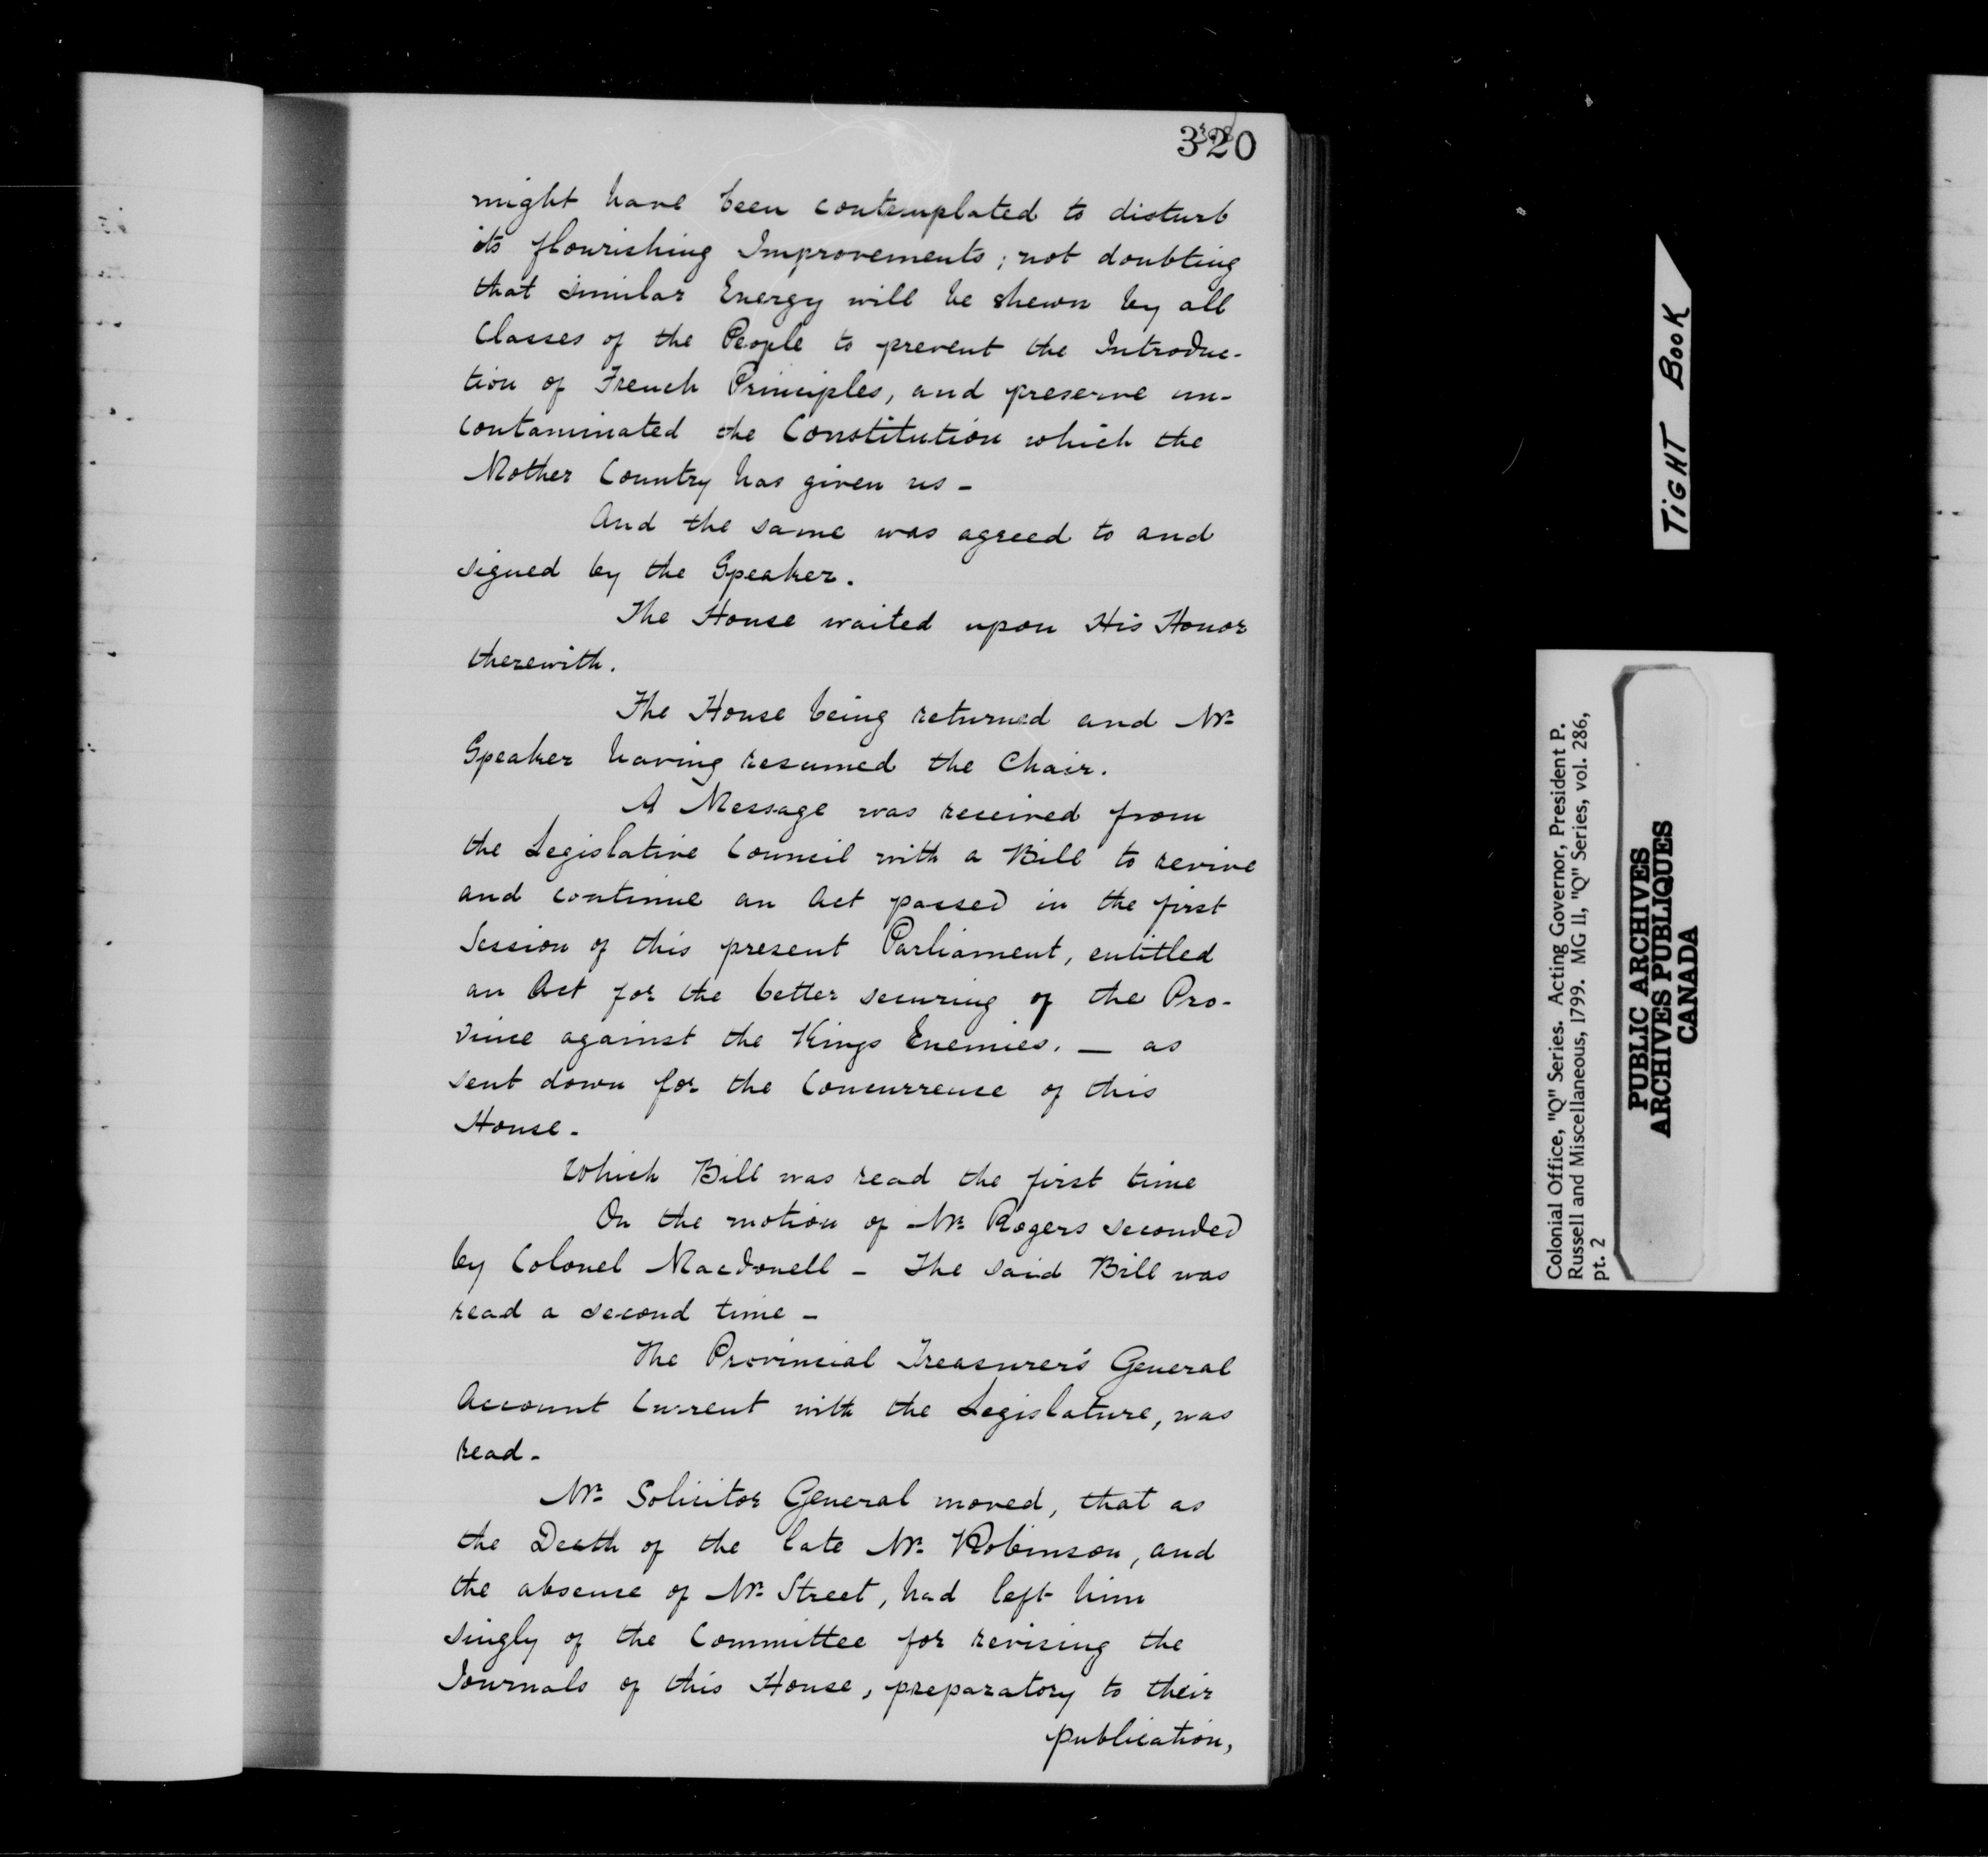 320
might have been contemplated to disturb
its flourishing Improvements; not doubting
that similar Energy will be shewn by all
Classes of the People to prevent the Introduc-
tion of French Principles, and preserve un-
contaminated the Constitution which the
Mother Country has given us –
And the same was agreed to and
signed by the Speaker.
The House waited upon His Honor
therewith.
The House being returned and Mr.
Speaker having resumed the Chair.
A Message was received from
the Legislative Council with a Bill to revive
and continue an Act passed in the first
Session of this present Parliament, entitled
an Act for the better securing of the Pro-
vince against the Kings Enemies. — as
sent down for the Concurrence of this
House.
Which Bill was read the first time
On the motion of Mr. Rogers seconded
by Colonel Macdonell – The said Bill was
read a second time –
The Provincial Treasurer's General
Account Current with the Legislature, was
read.
Mr. Solicitor General moved, that as
the Death of the late Mr. Robinson, and
the absence of Mr. Street, had left him
singly of the Committee for revising the
Journals of this House, preparatory to their
publication,
TIGHT BOOK
Colonial Office, "Q" Series. Acting Governor, President P.
Russell and Miscellaneous, 1799. MG 11, "Q" Series, vol. 286,
pt. 2
PUBLIC ARCHIVES
ARCHIVES PUBLIQUES
CANADA